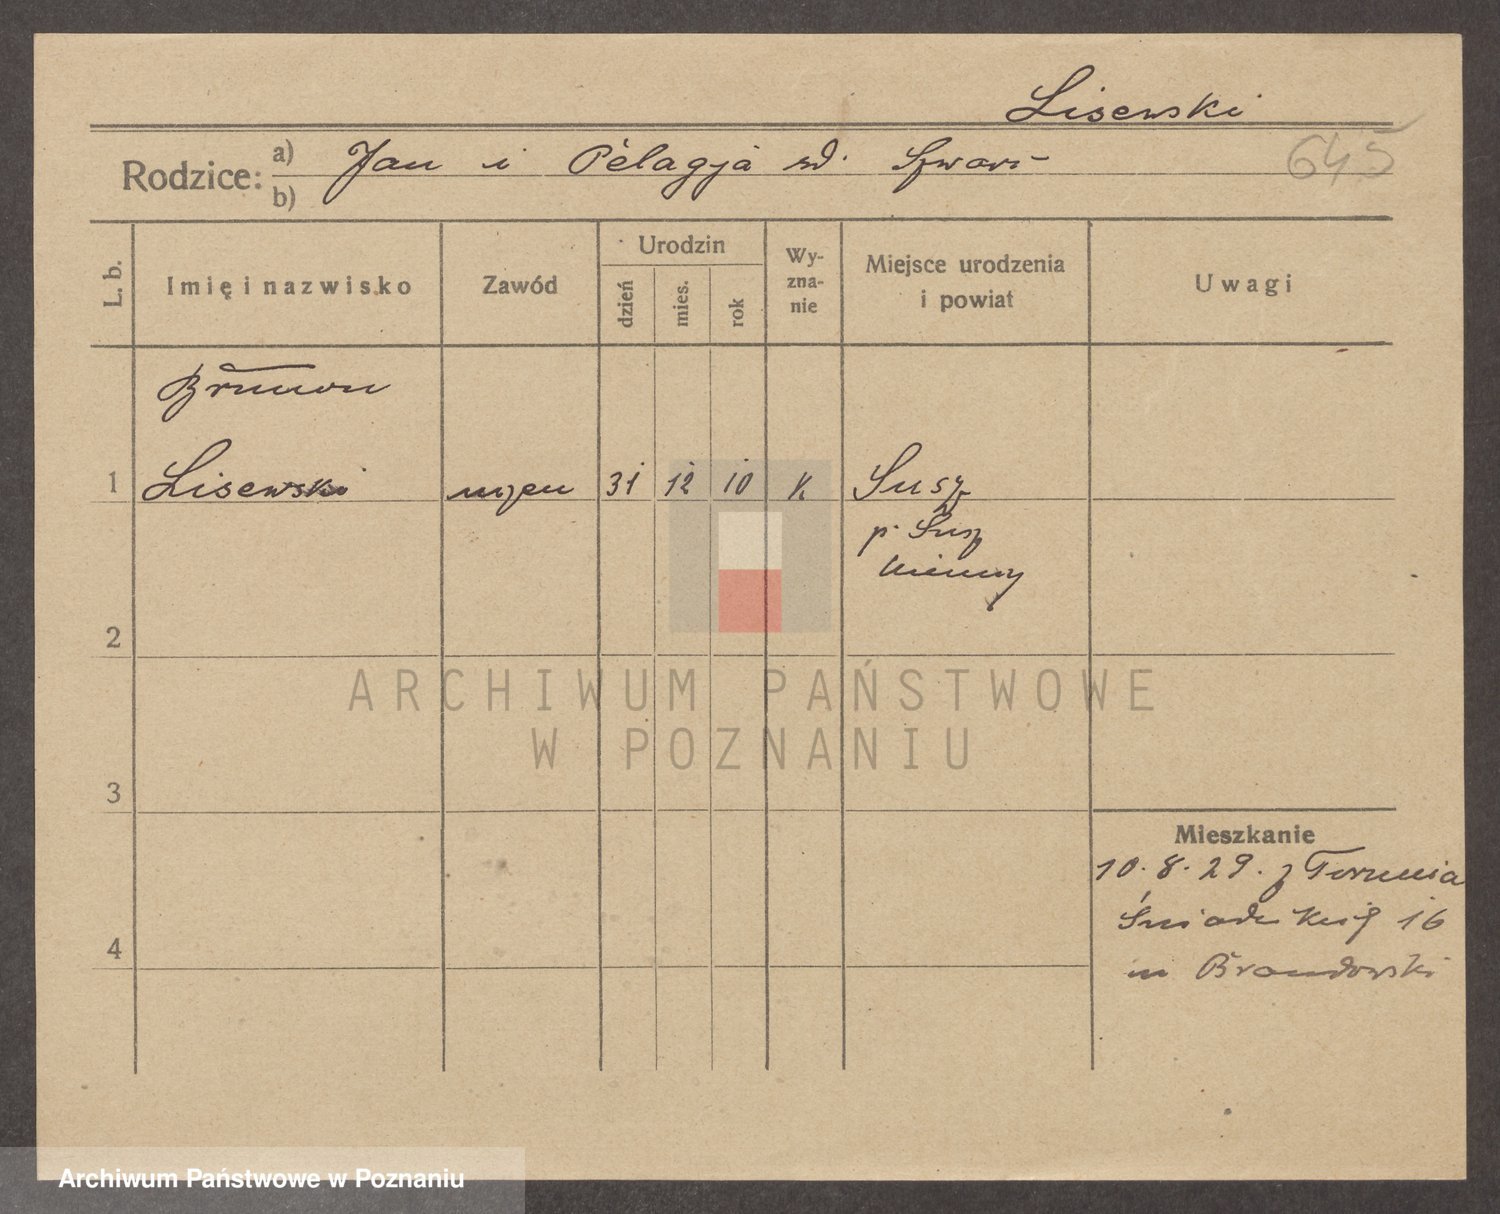 Lisewski
645
Rodzice:
a) Jan i Pelagja
b)
L. b.
Imię i nazwisko
Zawód
Urodzin
dzień
mies.
rok
Wy-
zna-
nie
Miejsce urodzenia
i powiat
Uwagi
Brunon
1 Lisewski 31 12 10 k Susz
p. Susz
Niemcy
2
3
4
Mieszkanie
10.8.29. z Torunia
16
m Brandowski
ARCHIWUM PAŃSTWOWE
W POZNANIU
Archiwum Państwowe w Poznaniu